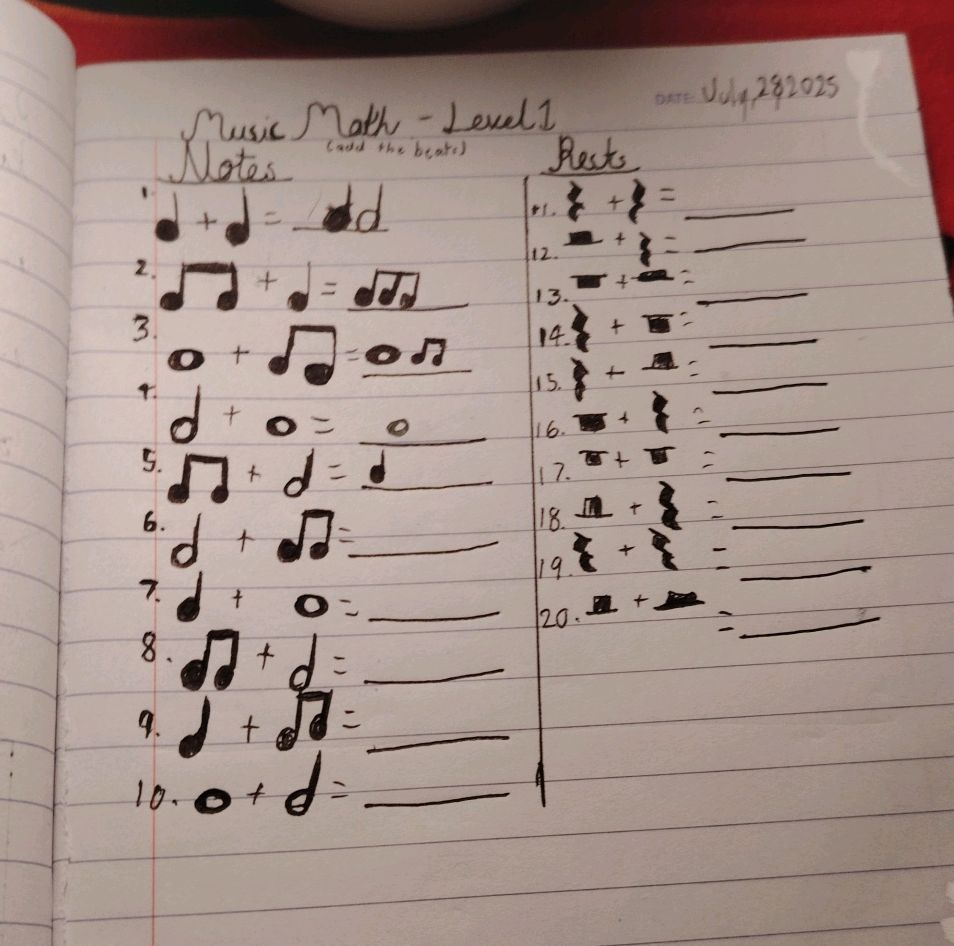 DATE: July, 28 2025
Music Math - Level 1
(add the beats)
Notes
1. ♩ + ♩ =
2. ♫ + ♩ =
3. 𝅝 + ♫ = 𝅝 ♫
4. 𝅗𝅥 + 𝅝 = 𝅝
5. ♫ + 𝅗𝅥 = ♩
6. 𝅗𝅥 + ♫ =
7. ♩ + 𝅝 =
8. ♫ + 𝅗𝅥 =
9. ♩ + ♫ =
10. 𝅝 + 𝅗𝅥 =
Rests
11. 𝄽 + 𝄽 =
12. 𝄼 + 𝄽 =
13. 𝄻 + 𝄼 =
14. 𝄽 + 𝄻 =
15. 𝄽 + 𝄼 =
16. 𝄻 + 𝄽 =
17. 𝄻 + 𝄻 =
18. 𝄼 + 𝄽 =
19. 𝄽 + 𝄽 =
20. 𝄼 + 𝄼 =